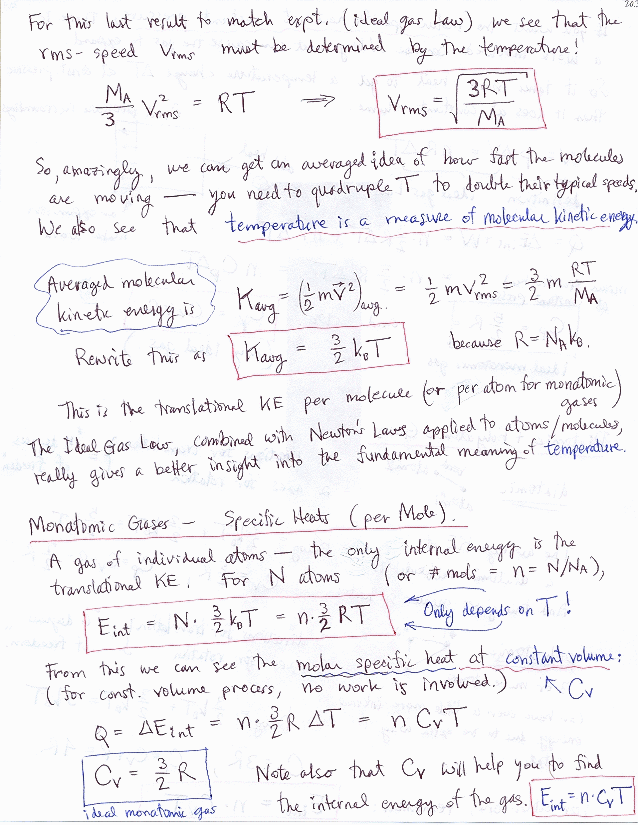 For this last result to match expt. (ideal gas Law) we see that the
rms-speed Vrms must be determined by the temperature!
M_A/3 V²rms = RT ⟹ Vrms = √(3RT/M_A)
So, amazingly, we can get an averaged idea of how fast the molecules
are moving — you need to quadruple T to double their typical speeds.
We also see that temperature is a measure of molecular kinetic energy.
Averaged molecular
kinetic energy is
Kavg = (½ m v⃗²)avg. = ½ m V²rms = 3/2 m RT/M_A
Rewrite this as Kavg = 3/2 k_B T because R = N_A k_B.
This is the translational KE per molecule (or per atom for monatomic
gases)
The Ideal Gas Law, combined with Newton's Laws applied to atoms/molecules,
really gives a better insight into the fundamental meaning of temperature.
Monatomic Gases — Specific Heats (per Mole).
A gas of individual atoms — the only internal energy is the
translational KE. For N atoms (or # mols = n = N/N_A),
Eint = N · 3/2 k_B T = n · 3/2 RT Only depends on T!
From this we can see the molar specific heat at constant volume:
(for const. volume process, no work is involved.) ↖ Cv
Q = ΔEint = n · 3/2 R ΔT = n Cv T
Cv = 3/2 R Note also that Cv will help you to find
ideal monatomic gas the internal energy of the gas. Eint = n · Cv T